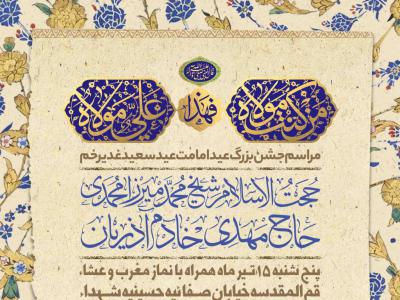 من كنت مولاه فهذا علي مولاه
مراسم جشن بزرگ عید امامت عید سعید غدیر خم
حجت الاسلام شیخ محمد میرزامحمدی
حاج مهدی خادم آذریان
پنج شنبه ۱۵ تیر ماه همراه با نماز مغرب و عشاء
قم المقدسه خیابان صفائیه حسینیه شهداء